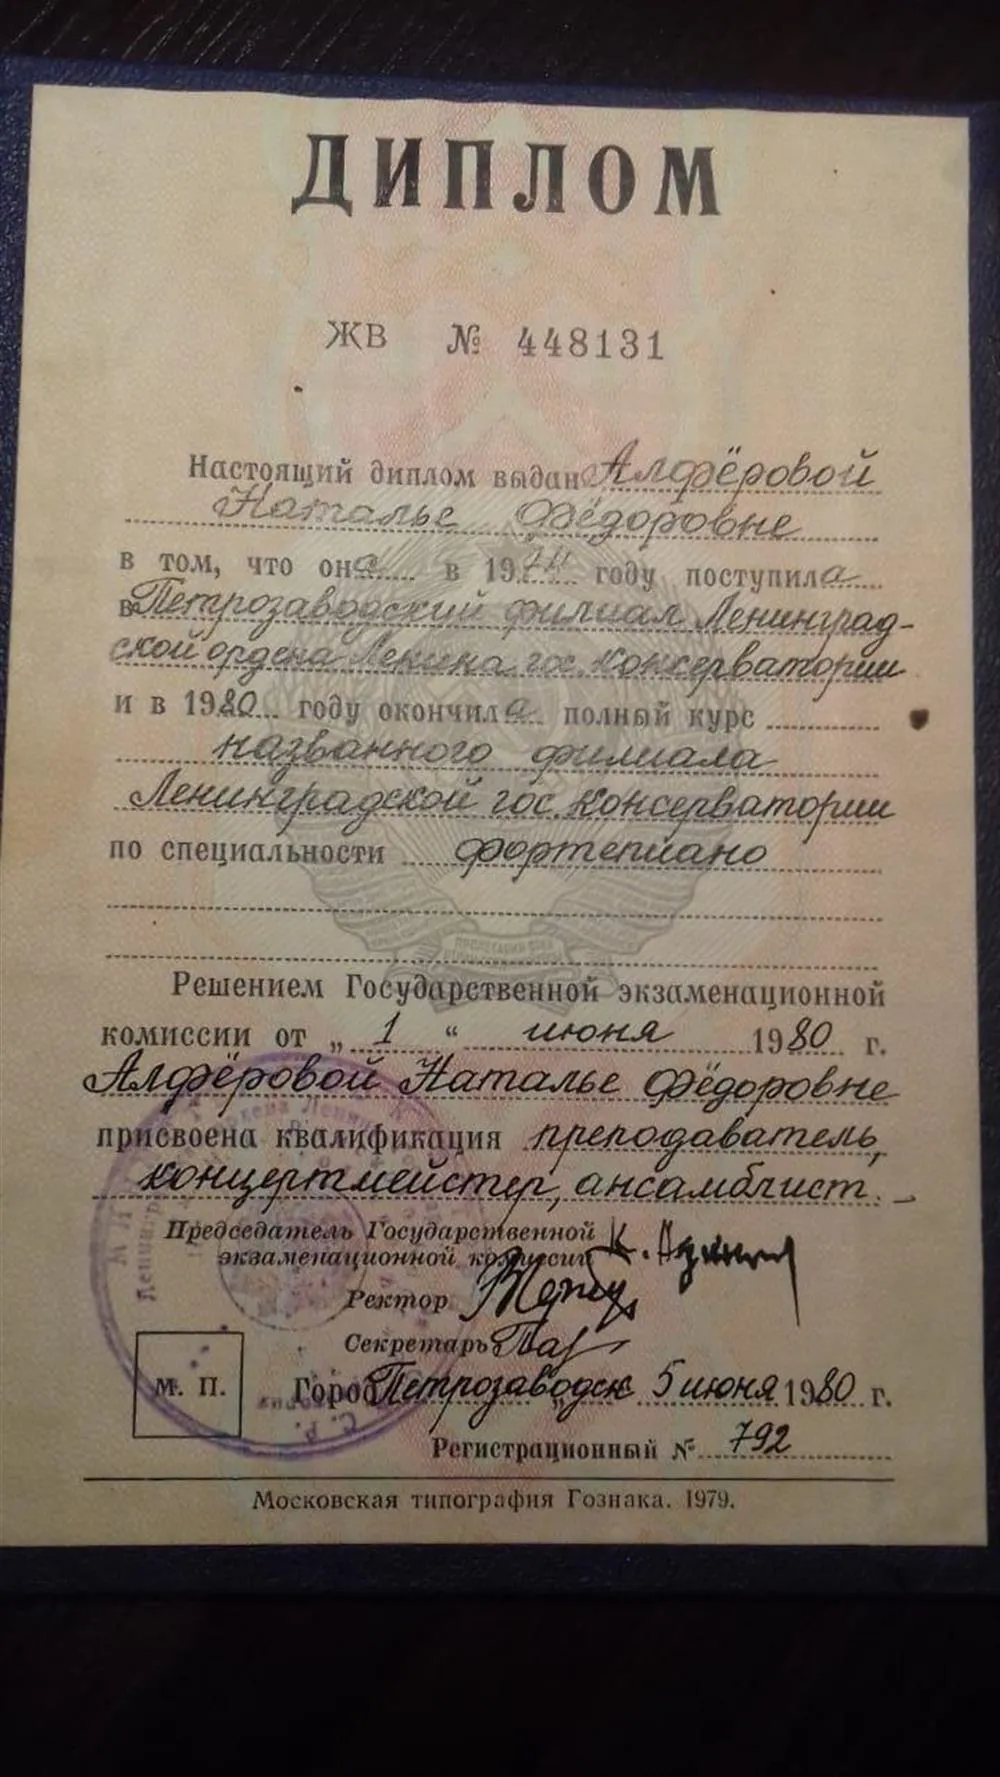 ДИПЛОМ
ЖВ № 448131
Настоящий диплом выдан Алфёровой
Наталье Фёдоровне
в том, что она в 1974 году поступила
в Петрозаводский филиал Ленинград-
ской ордена Ленина гос. консерватории
и в 1980 году окончила полный курс
названного филиала
Ленинградской гос. консерватории
по специальности фортепиано
Решением Государственной экзаменационной
комиссии от „1“ июня 1980 г.
Алфёровой Наталье Фёдоровне
присвоена квалификация преподаватель,
концертмейстер, ансамблист.
Председатель Государственной
экзаменационной комиссии
Ректор
Секретарь
М. П. Город Петрозаводск 5 июня 1980 г.
Регистрационный № 792
Московская типография Гознака. 1979.